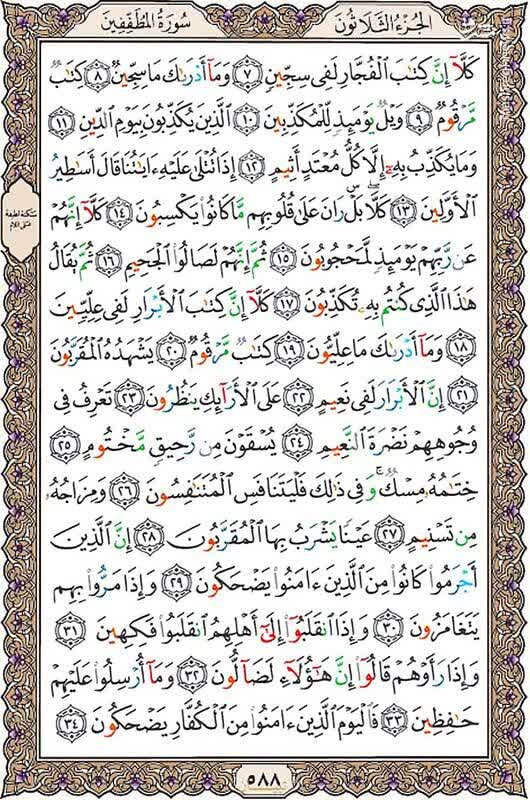 سُورَةُ المُطَفِّفِينَ
الجُزْءُ الثَّلَاثُونَ
كَلَّآ إِنَّ كِتَٰبَ ٱلْفُجَّارِ لَفِى سِجِّينٍ ٧ وَمَآ أَدْرَىٰكَ مَا سِجِّينٌ ٨ كِتَٰبٌ
مَّرْقُومٌ ٩ وَيْلٌ يَوْمَئِذٍ لِّلْمُكَذِّبِينَ ١٠ ٱلَّذِينَ يُكَذِّبُونَ بِيَوْمِ ٱلدِّينِ ١١
وَمَا يُكَذِّبُ بِهِۦٓ إِلَّا كُلُّ مُعْتَدٍ أَثِيمٍ ١٢ إِذَا تُتْلَىٰ عَلَيْهِ ءَايَٰتُنَا قَالَ أَسَٰطِيرُ
ٱلْأَوَّلِينَ ١٣ كَلَّا ۖ بَلْ رَانَ عَلَىٰ قُلُوبِهِم مَّا كَانُوا۟ يَكْسِبُونَ ١٤ كَلَّآ إِنَّهُمْ
عَن رَّبِّهِمْ يَوْمَئِذٍ لَّمَحْجُوبُونَ ١٥ ثُمَّ إِنَّهُمْ لَصَالُوا۟ ٱلْجَحِيمِ ١٦ ثُمَّ يُقَالُ
هَٰذَا ٱلَّذِى كُنتُم بِهِۦ تُكَذِّبُونَ ١٧ كَلَّآ إِنَّ كِتَٰبَ ٱلْأَبْرَارِ لَفِى عِلِّيِّينَ
١٨ وَمَآ أَدْرَىٰكَ مَا عِلِّيُّونَ ١٩ كِتَٰبٌ مَّرْقُومٌ ٢٠ يَشْهَدُهُ ٱلْمُقَرَّبُونَ
٢١ إِنَّ ٱلْأَبْرَارَ لَفِى نَعِيمٍ ٢٢ عَلَى ٱلْأَرَآئِكِ يَنظُرُونَ ٢٣ تَعْرِفُ فِى
وُجُوهِهِمْ نَضْرَةَ ٱلنَّعِيمِ ٢٤ يُسْقَوْنَ مِن رَّحِيقٍ مَّخْتُومٍ ٢٥
خِتَٰمُهُۥ مِسْكٌ ۚ وَفِى ذَٰلِكَ فَلْيَتَنَافَسِ ٱلْمُتَنَٰفِسُونَ ٢٦ وَمِزَاجُهُۥ
مِن تَسْنِيمٍ ٢٧ عَيْنًا يَشْرَبُ بِهَا ٱلْمُقَرَّبُونَ ٢٨ إِنَّ ٱلَّذِينَ
أَجْرَمُوا۟ كَانُوا۟ مِنَ ٱلَّذِينَ ءَامَنُوا۟ يَضْحَكُونَ ٢٩ وَإِذَا مَرُّوا۟ بِهِمْ
يَتَغَامَزُونَ ٣٠ وَإِذَا ٱنقَلَبُوٓا۟ إِلَىٰٓ أَهْلِهِمُ ٱنقَلَبُوا۟ فَكِهِينَ ٣١
وَإِذَا رَأَوْهُمْ قَالُوٓا۟ إِنَّ هَٰٓؤُلَآءِ لَضَآلُّونَ ٣٢ وَمَآ أُرْسِلُوا۟ عَلَيْهِمْ
حَٰفِظِينَ ٣٣ فَٱلْيَوْمَ ٱلَّذِينَ ءَامَنُوا۟ مِنَ ٱلْكُفَّارِ يَضْحَكُونَ ٣٤
٥٨٨